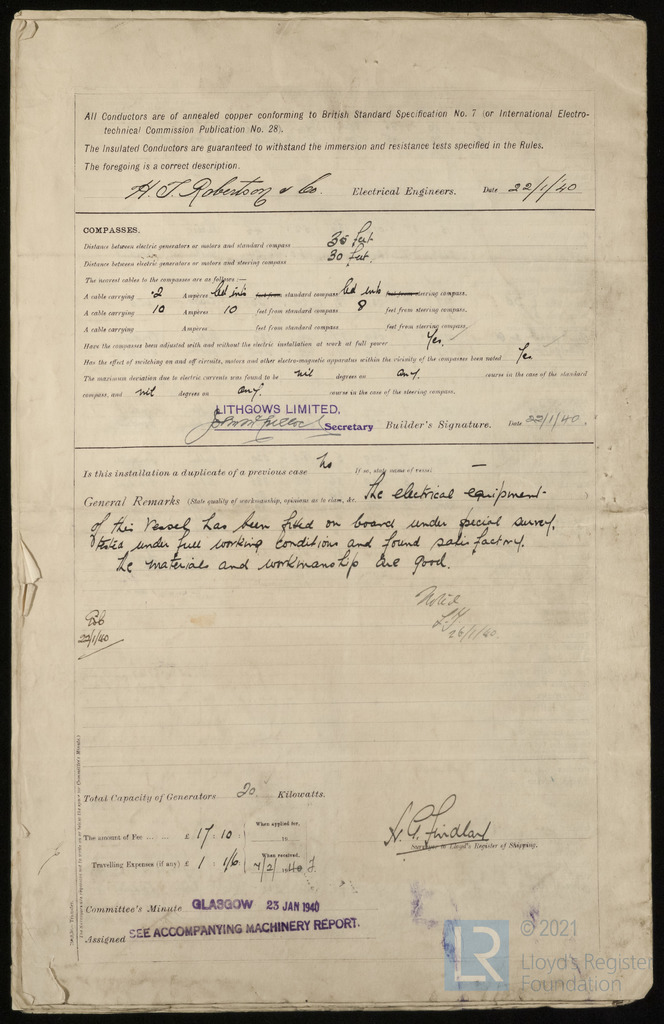 All Conductors are of annealed copper conforming to British Standard Specification No. 7 (or International Electro-
technical Commission Publication No. 28).
The Insulated Conductors are guaranteed to withstand the immersion and resistance tests specified in the Rules.
The foregoing is a correct description.
H. T. Robertson & Co. Electrical Engineers. Date 22/1/40
COMPASSES.
Distance between electric generators or motors and standard compass 35 feet.
Distance between electric generators or motors and steering compass 30 feet.
The nearest cables to the compasses are as follows:—
A cable carrying .2 Ampères led into feet from standard compass led into feet from steering compass.
A cable carrying 10 Ampères 10 feet from standard compass 8 feet from steering compass.
A cable carrying Ampères feet from standard compass feet from steering compass.
Have the compasses been adjusted with and without the electric installation at work at full power Yes.
Has the effect of switching on and off circuits, motors and other electro-magnetic apparatus within the vicinity of the compasses been noted Yes
The maximum deviation due to electric currents was found to be nil degrees on any. course in the case of the standard
compass, and nil degrees on any. course in the case of the steering compass.
LITHGOWS LIMITED.
Secretary Builder's Signature. Date 22/1/40.
Is this installation a duplicate of a previous case No If so, state name of vessel —
General Remarks (State quality of workmanship, opinions as to class, &c. The electrical equipment
of this vessel has been fitted on board under special survey,
tested under full working conditions and found satisfactory.
The materials and workmanship are good.
Noted
26/1/40.
22/1/40
Total Capacity of Generators 20 Kilowatts.
The amount of Fee ... ... £ 17 : 10 : When applied for,
Travelling Expenses (if any) £ 1 : 1/6 : When received,
4/2/1940
H. G. Findlay
Surveyor to Lloyd's Register of Shipping.
Committee's Minute GLASGOW 23 JAN 1940
Assigned SEE ACCOMPANYING MACHINERY REPORT.
LR © 2021
Lloyd's Register
Foundation